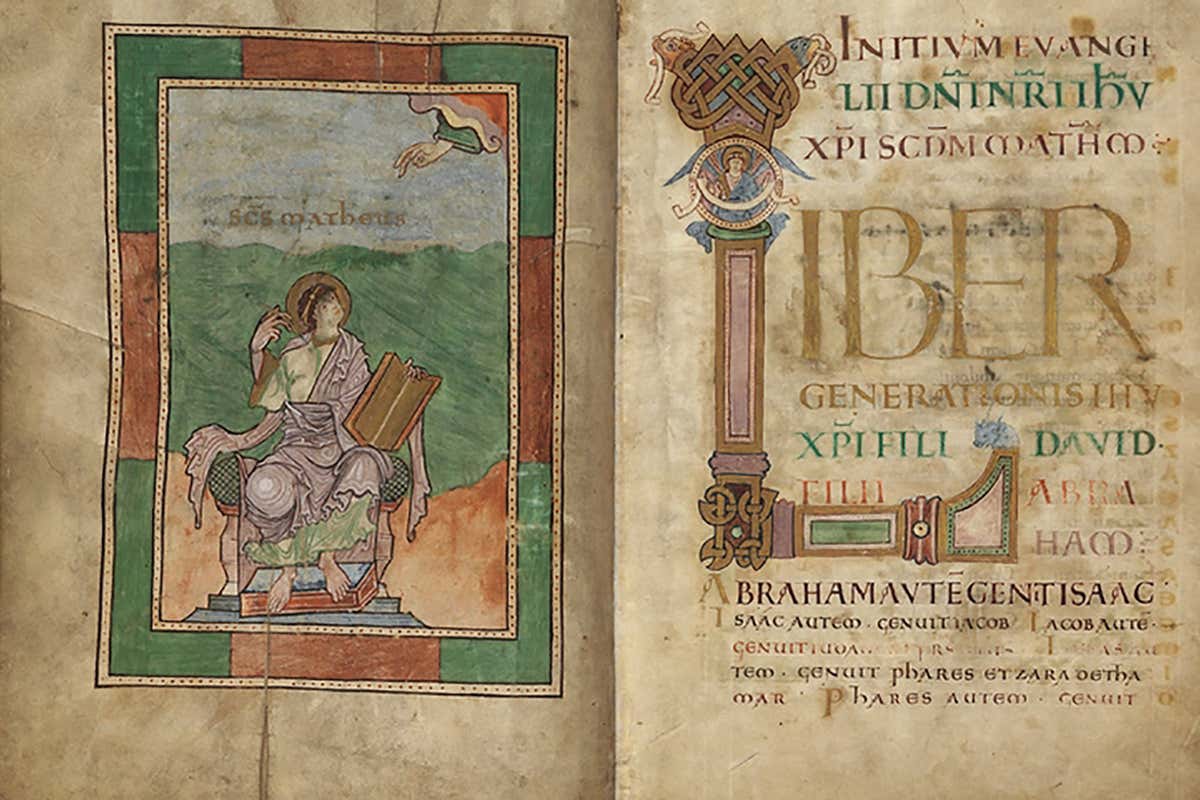 SCS matheus
INITIVM EVANGE
LII DN̄I N̄RI IHV
XP̄I SCDM MATHM:
LIBER
GENERATIONIS IHV
XP̄I FILI DAVID·
FILII ABRA
HAM:
ABRAHAM AVTĒ GENT ISAAC·
ISAAC AUTEM · GENUIT IACOB IACOB AUTĒ·
GENUIT IUDA
TEM · GENUIT phARES ET ZARA DE THA
MAR PhARES AUTEM · GENUIT